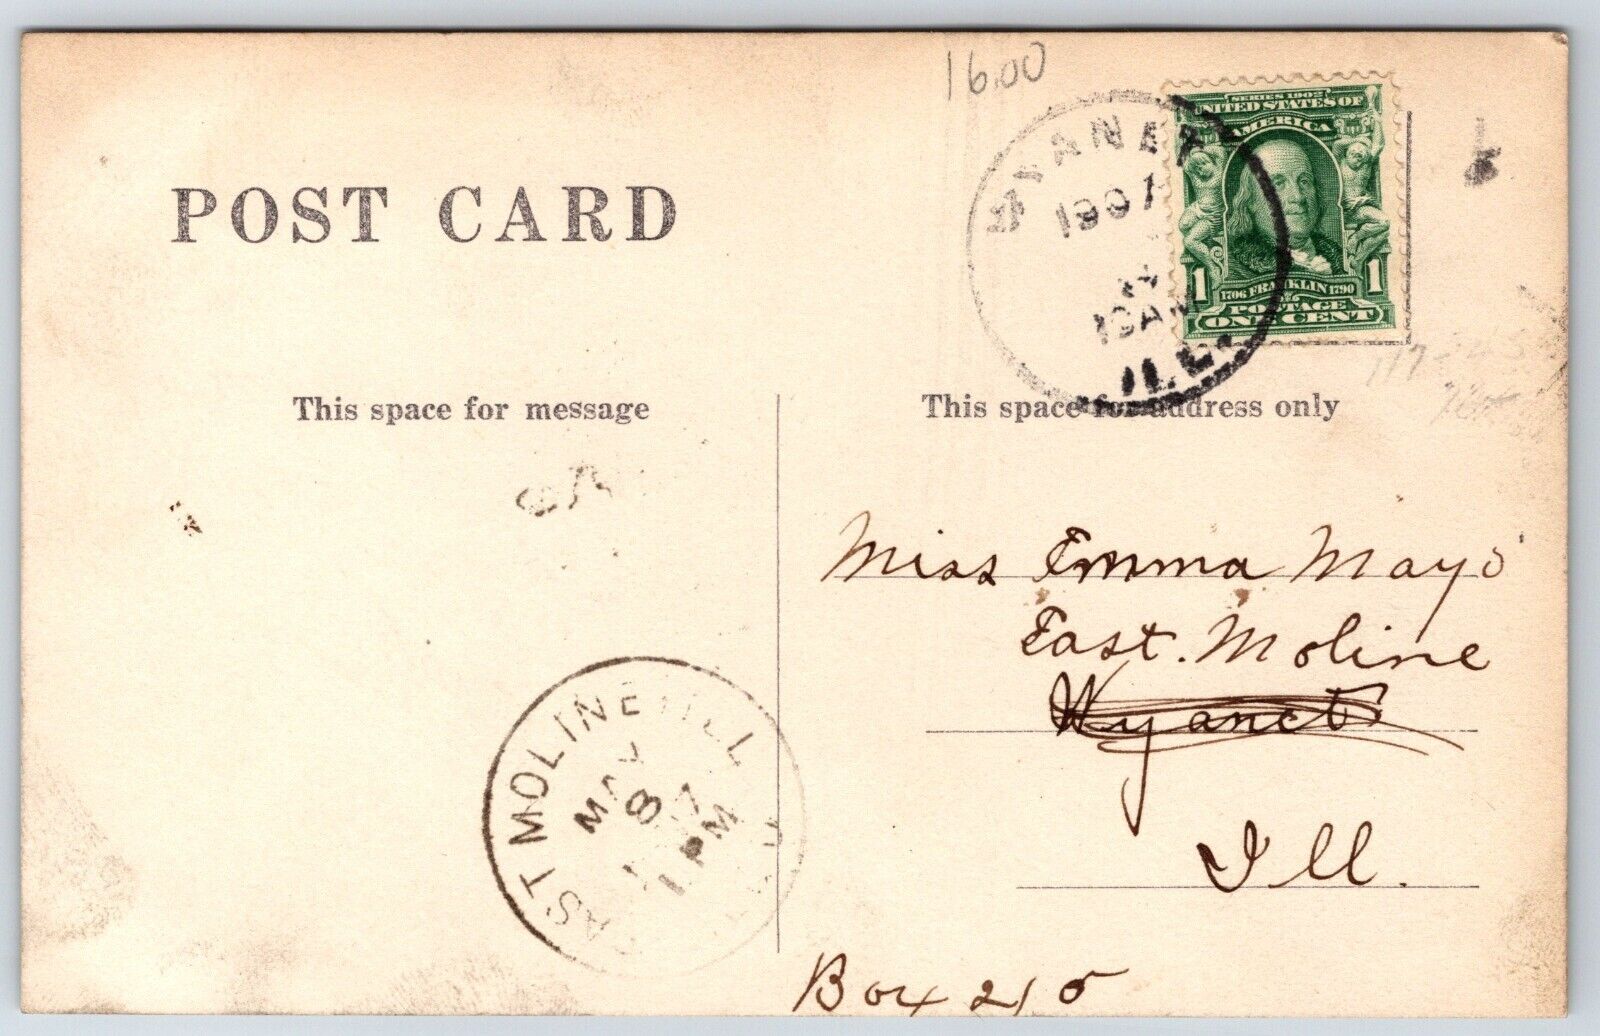 16.00
WYANET
1907
10AM
ILL.
SERIES 1902
UNITED STATES OF
AMERICA
1 1
1706 FRANKLIN 1790
POSTAGE
ONE CENT
POST CARD
This space for message
This space for address only
Miss Emma Mayo
East. Moline
Wyanet
Ill.
Box 215
EAST MOLINE ILL
MAY
8
1 PM